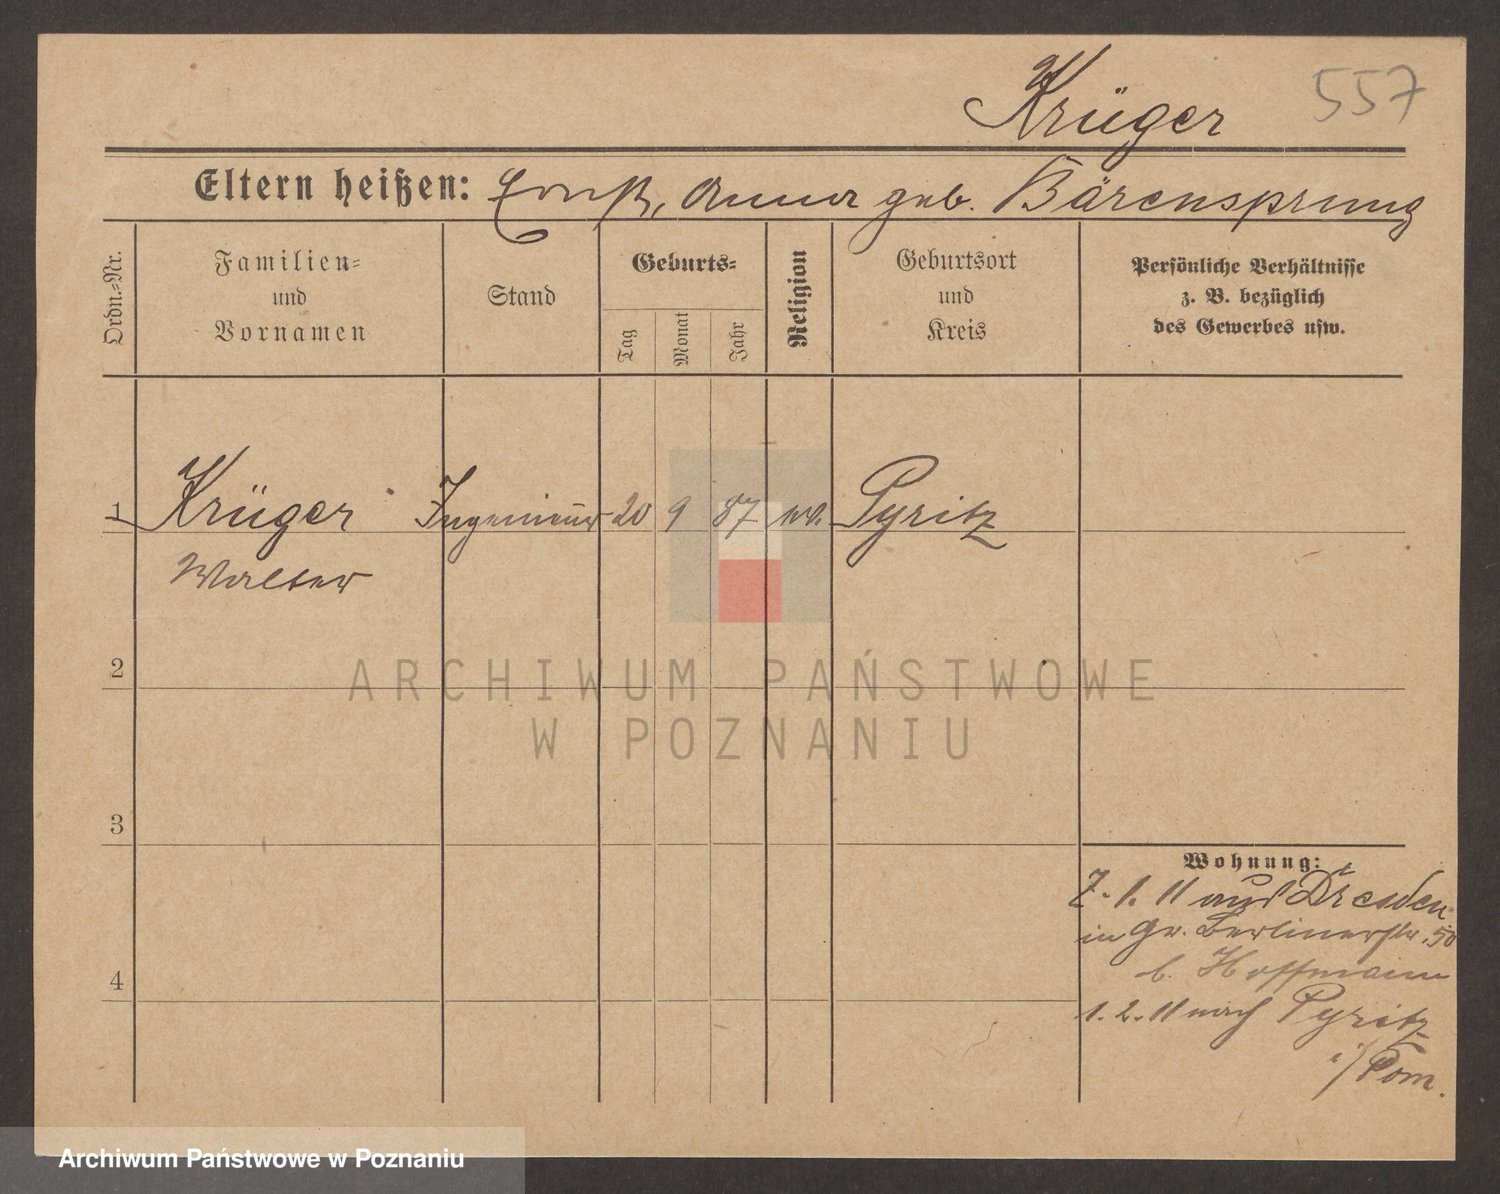 Krüger 557
Eltern heißen: Ernst, Anna geb. Bärensprung
Ordn.=Nr.
Familien=
und
Vornamen
Stand
Geburts=
Tag
Monat
Jahr
Religion
Geburtsort
und
Kreis
Persönliche Verhältnisse
z. B. bezüglich
des Gewerbes usw.
1 Krüger Ingenieur 20 9 87 ev. Pyritz
Walter
2
ARCHIWUM PAŃSTWOWE
W POZNANIU
3
Wohnung:
7. 1. 11 aus Dresden
in Gr. Berlinerstr. 50
b. Hoffmann
4
1. 2. 11 nach Pyritz
i/Pom.
Archiwum Państwowe w Poznaniu